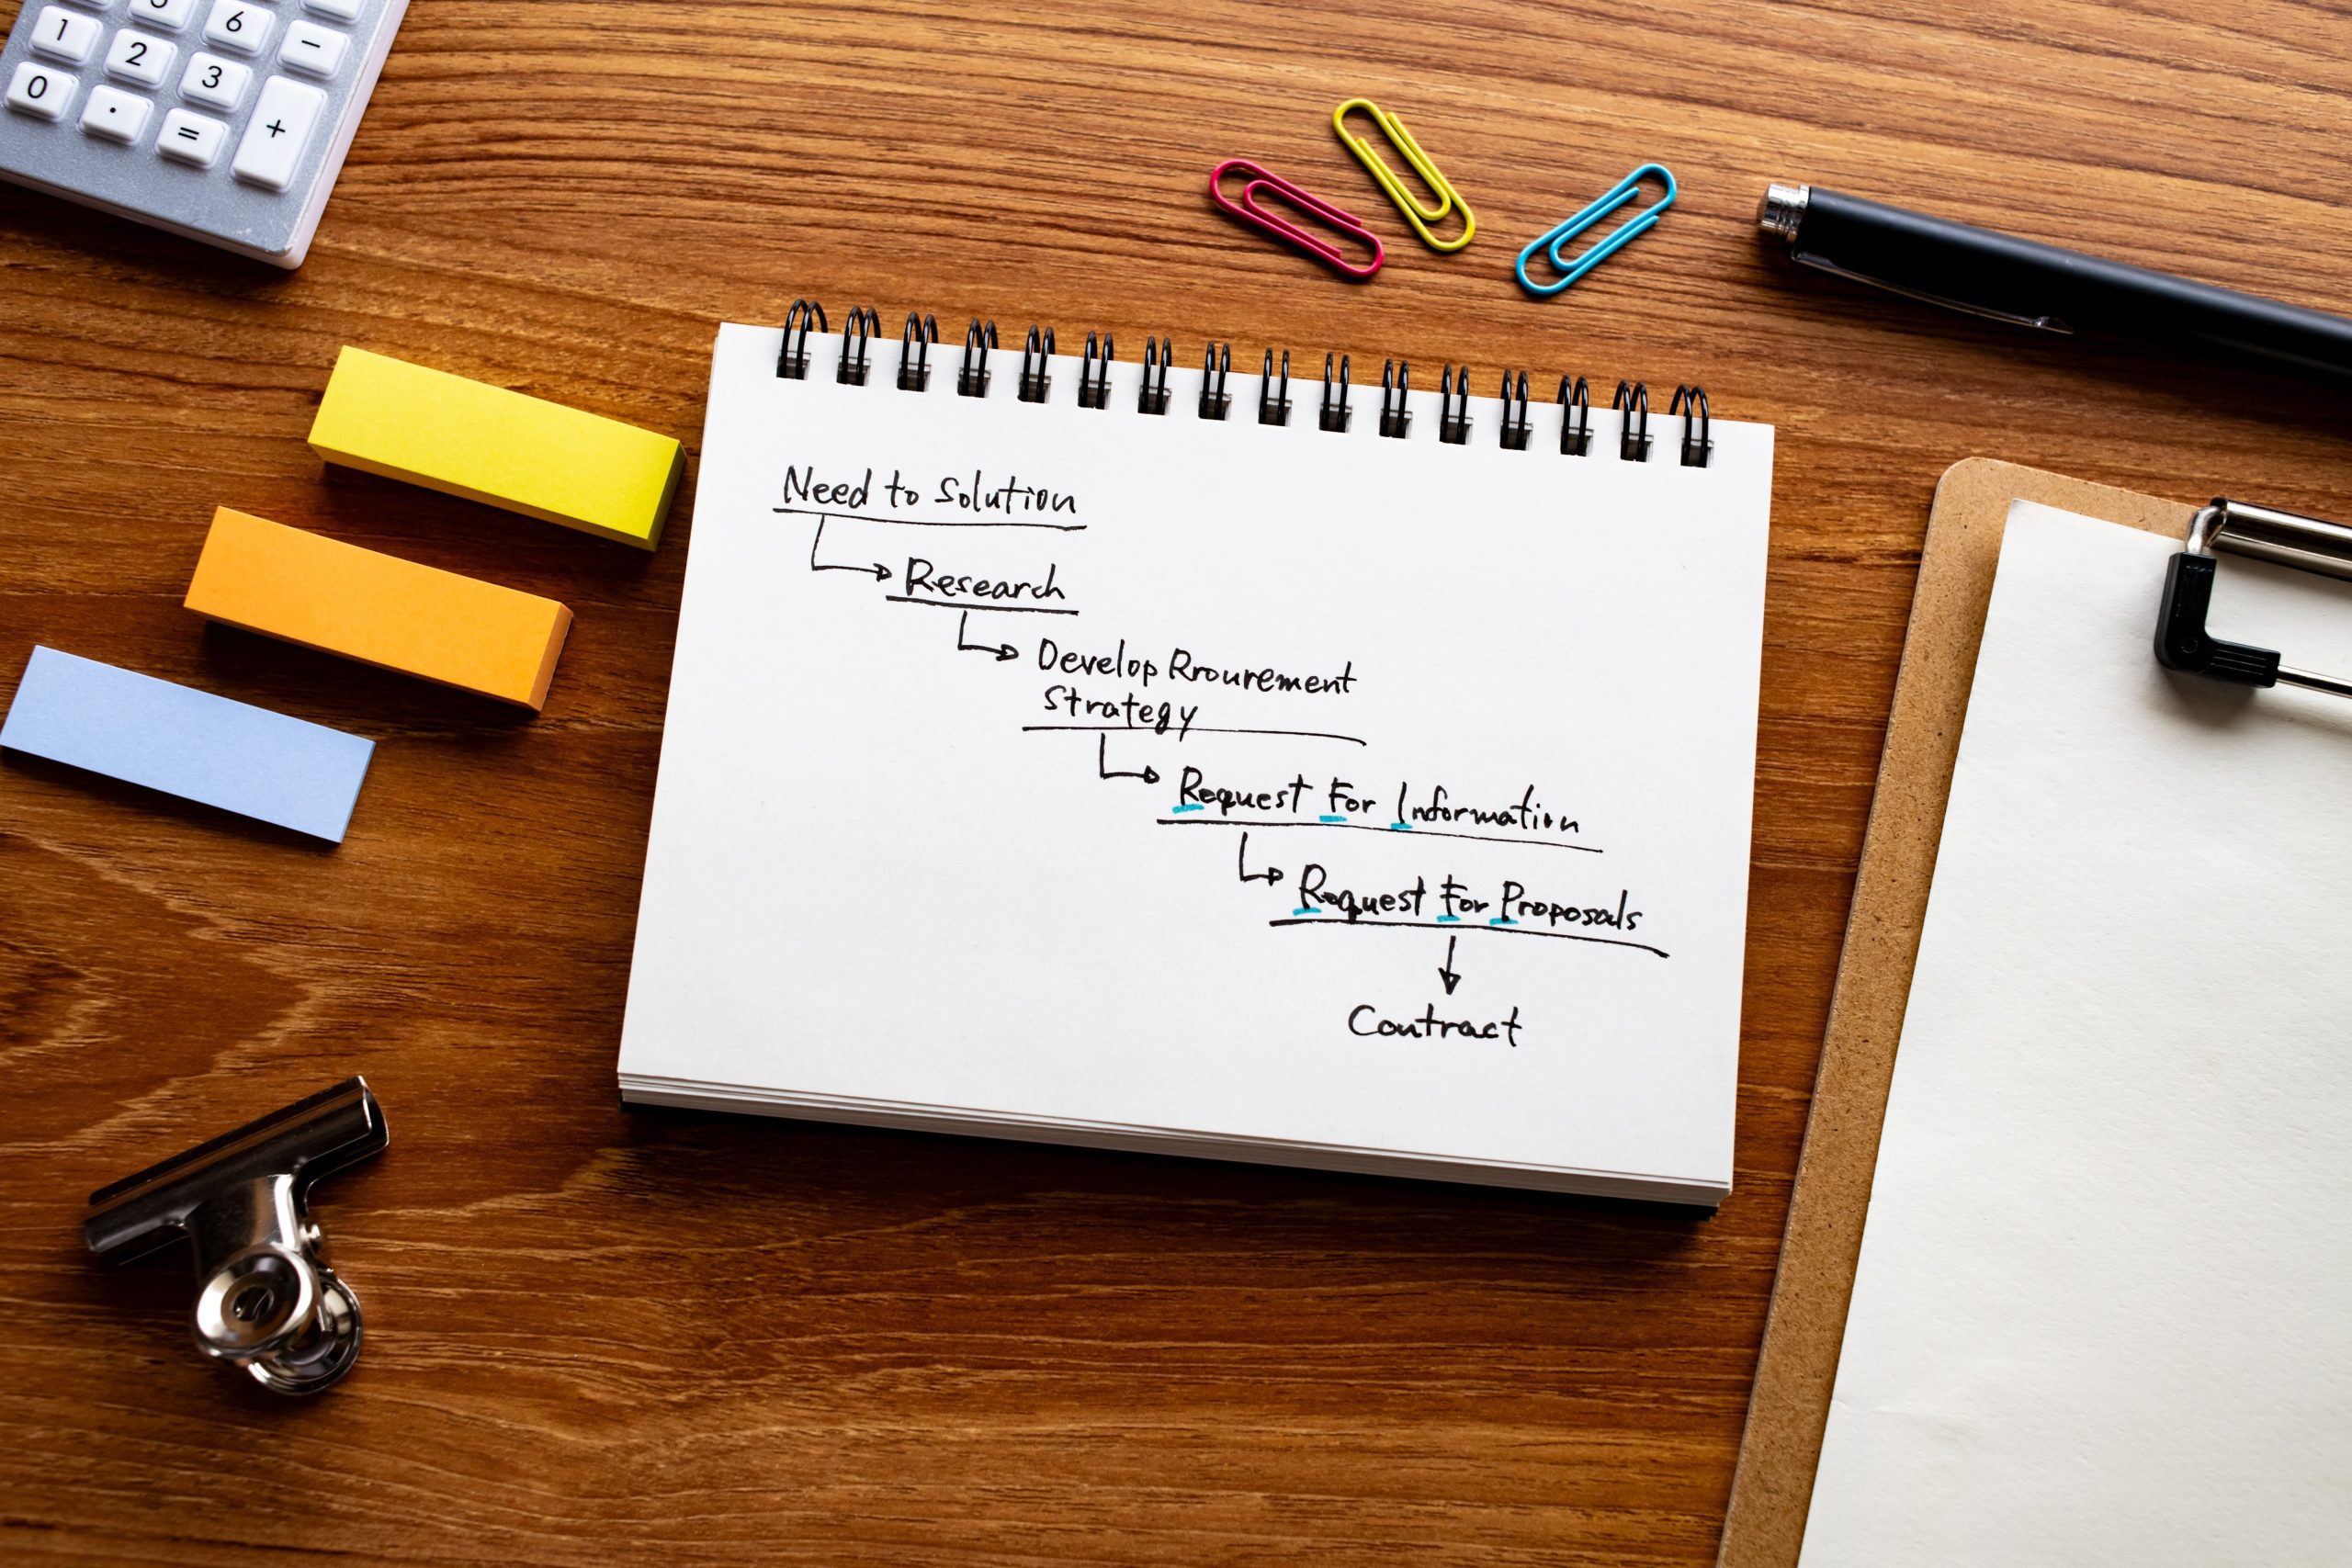 5 6 -
1 2 3
0 . = +
Need to Solution
Research
Develop Rrourement
Strategy
Request For Information
Request For Proposals
Contract